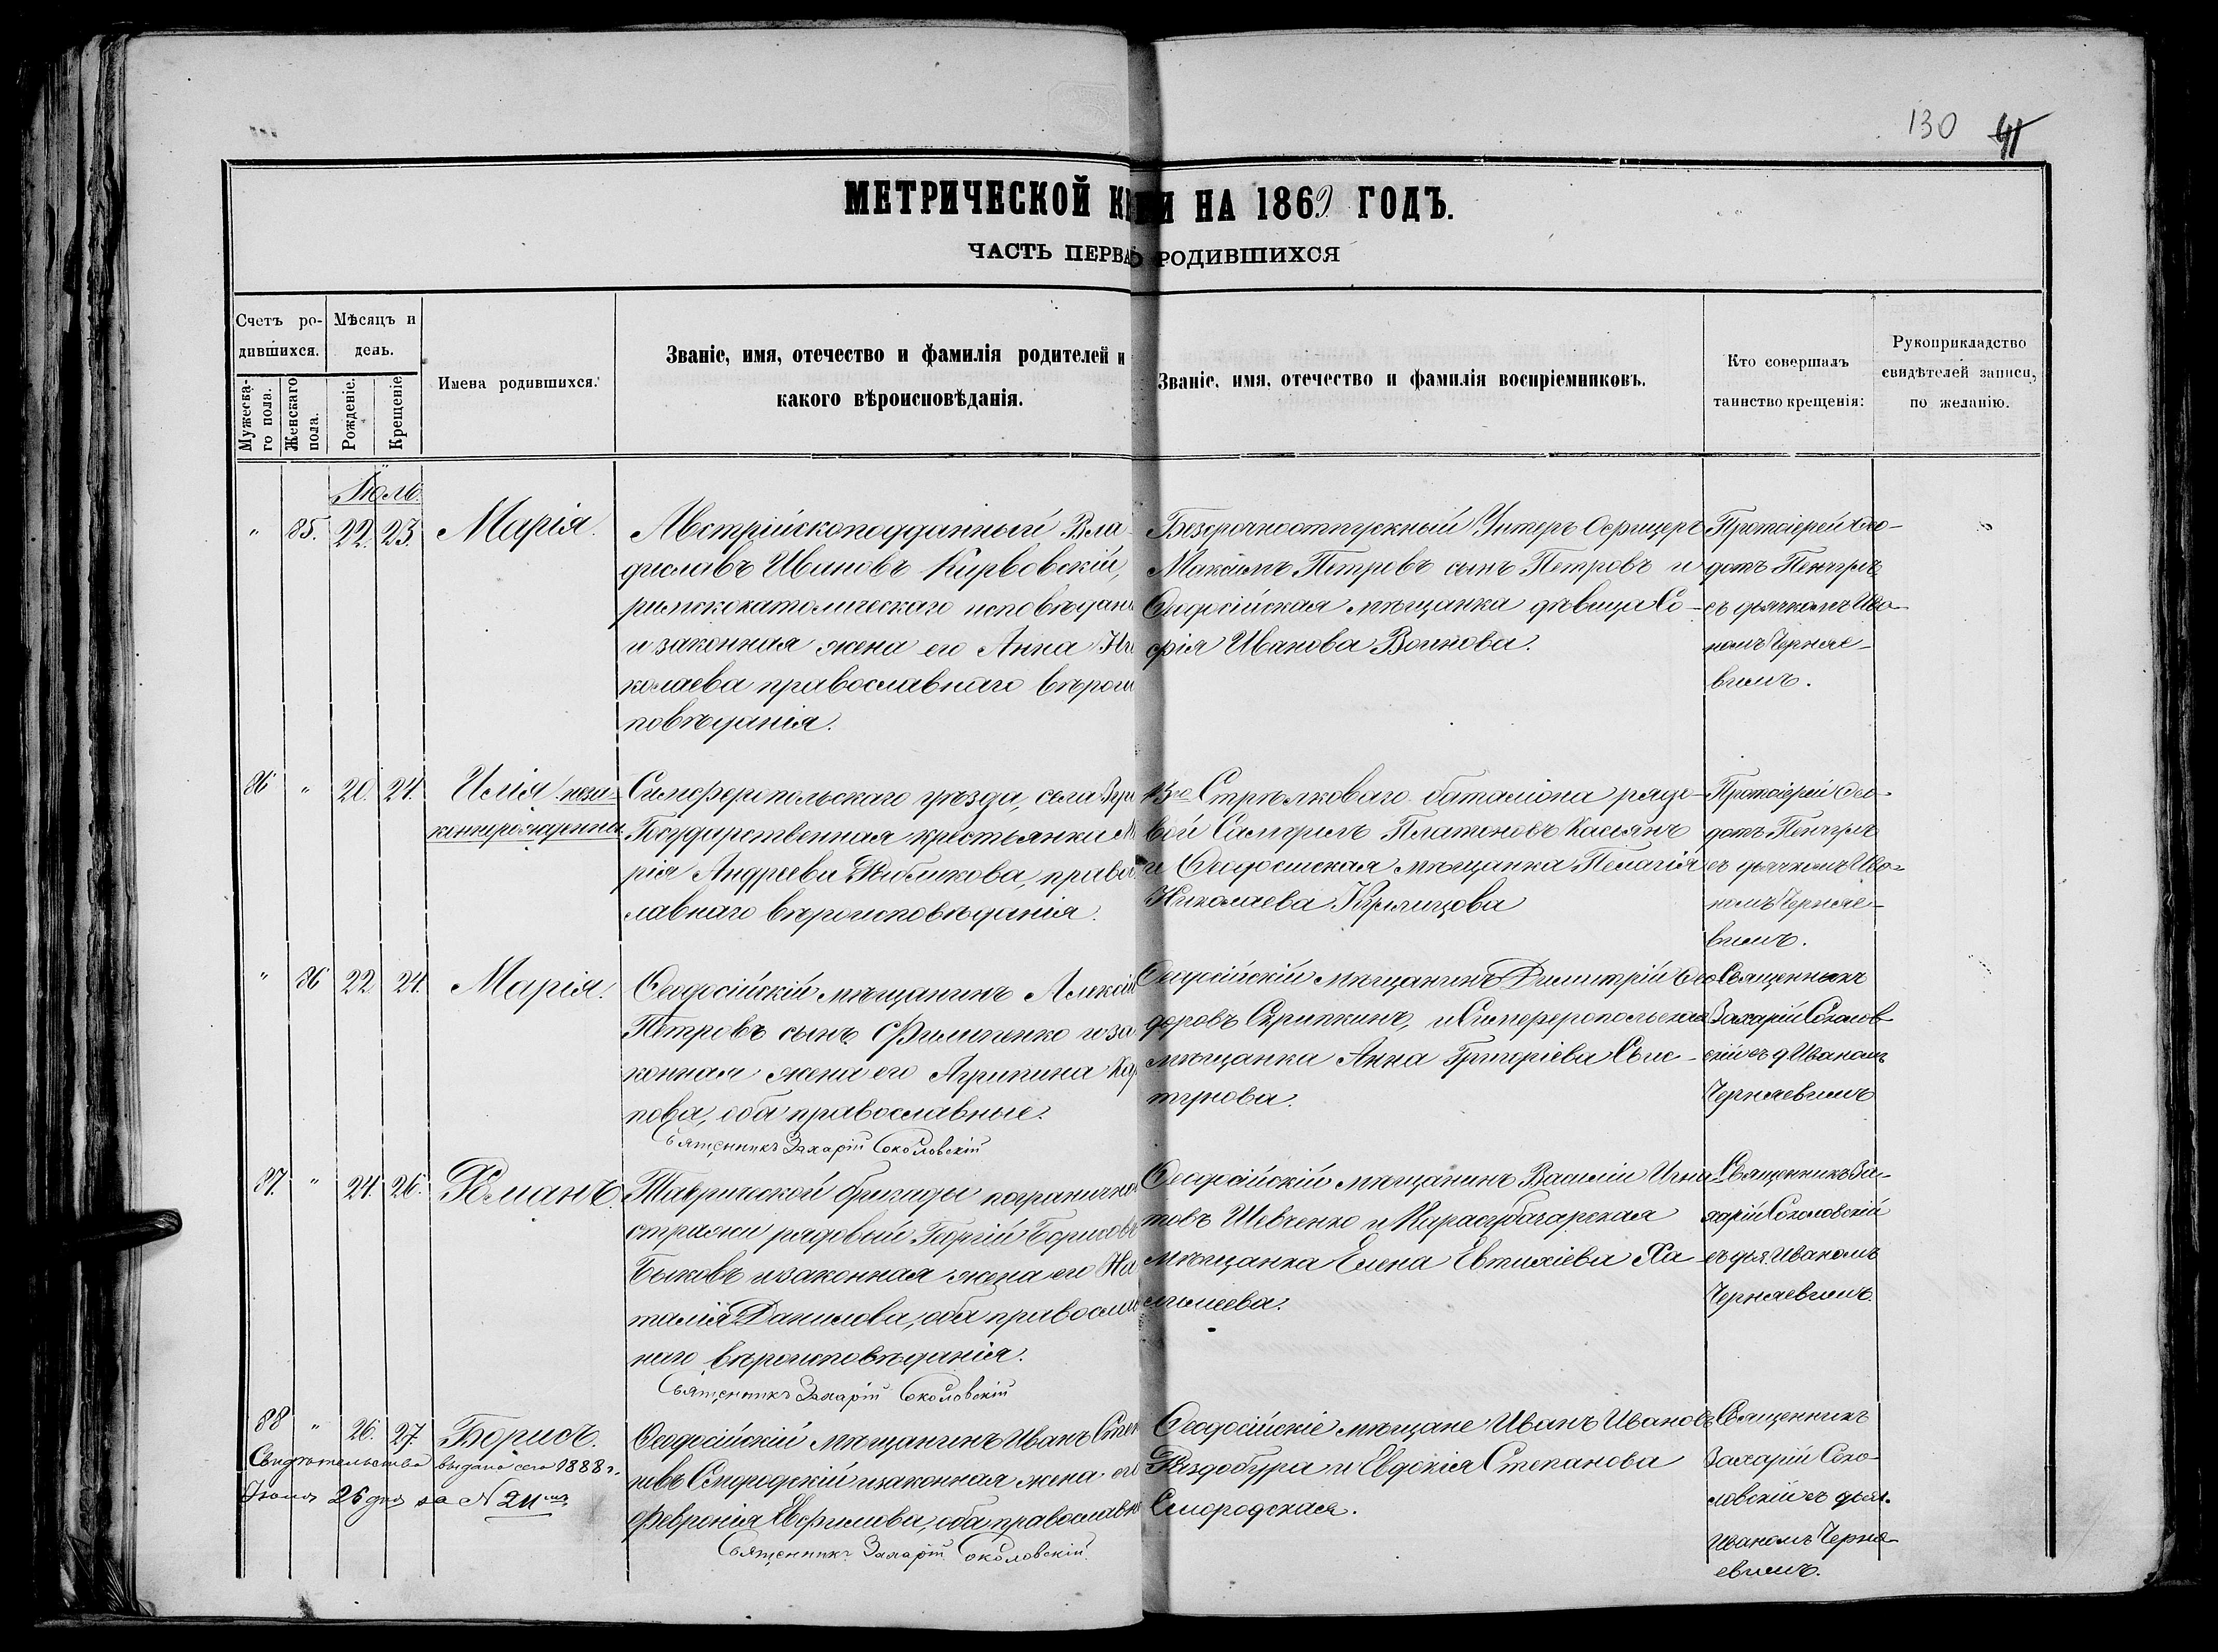 130 41
МЕТРИЧЕСКОЙ КНИГИ НА 1869 ГОДЪ.
ЧАСТЬ ПЕРВАЯ О РОДИВШИХСЯ
Счетъ ро-
дившихся.
Мужеска-
го пола.
Женскаго
пола.
Мѣсяцъ и
день.
Рожденіе.
Крещеніе
Имена родившихся.
Званіе, имя, отечество и фамилія родителей и
какого вѣроисповѣданія.
Званіе, имя, отечество и фамилія воспріемниковъ.
Кто совершалъ
таинство крещенія:
Рукоприкладство
свидѣтелей записи,
по желанію.
Іюль.
" 85. 22. 23. Марія.
Австрійскоподданный Вла-
диславъ Ивановъ Кирвовскій,
римскокатолическаго исповѣдані
и законная жена его Анна Ни
колаева православнаго вѣроис
повѣданія.
Безсрочноотпускный Унтеръ Офицеръ
Максимъ Петровъ сынъ Петровъ и
Ѳеодосійская мѣщанка дѣвица Со-
фія Иванова Воинова.
Протоіерей Ѳео-
дотъ
съ дьячкомъ Ива-
номъ Черняе-
вымъ.
86 " 20. 24. Илія неза-
коннорожденный
Симферопольскаго уѣзда, села Зуи
Государственная крестьянка Ма
рія Андреева, правос
лавнаго вѣроисповѣданія.
15го Стрѣлковаго баталіона рядо-
вой Платоновъ Касьянъ
и Ѳеодосійская мѣщанка Пелагія
Николаева
Протоіерей Ѳео-
дотъ
съ дьячкомъ Ива-
номъ Черняе-
вымъ.
" 86 22 24. Марія.
Ѳеодосійскій мѣщанинъ Алексій
Петровъ сынъ Филипенко и за
конная жена его Агрипина Кар
пова, оба православные.
Священникъ Захарій Соколовскій
Ѳеодосійскій мѣщанинъ Димитрій Ѳео
доровъ Скрипкинъ, и Симферопольская
мѣщанка Анна Григоріева Свис-
тунова.
Священникъ
Захарій Соколов
скій съ д Иваномъ
Черняевымъ
87. " 24. 26. Романъ.
Таврической бригады пограничной
стражи рядовый Георгій Борисовъ
Быковъ и законная жена его На
талія Данилова, оба православ
наго вѣроисповѣданія.
Священникъ Захарій Соколовскій
Ѳеодосійскій мѣщанинъ Василій Игна
товъ Шевченко и Карасубазарская
мѣщанка Елена Евтихіева Ха-
Священникъ За-
харій Соколовскій
съ дья. Иваномъ
Черняевымъ.
88 " 26. 27. Борисъ.
Свидѣтельство выдано сего 1888 г.
Іюня 26 дня за № 24мъ
Ѳеодосійскій мѣщанинъ Иванъ Степа
новъ Смородскій и законная жена его
Февронія Евфимова, оба православн
Священникъ Захарій Соколовскій.
Ѳеодосійскіе мѣщане Иванъ Ивановъ
Раздобура и Евдокія Степанова
Смородская.
Священникъ
Захарій Соко-
ловскій съ дьяч.
Иваномъ Черня-
евымъ.